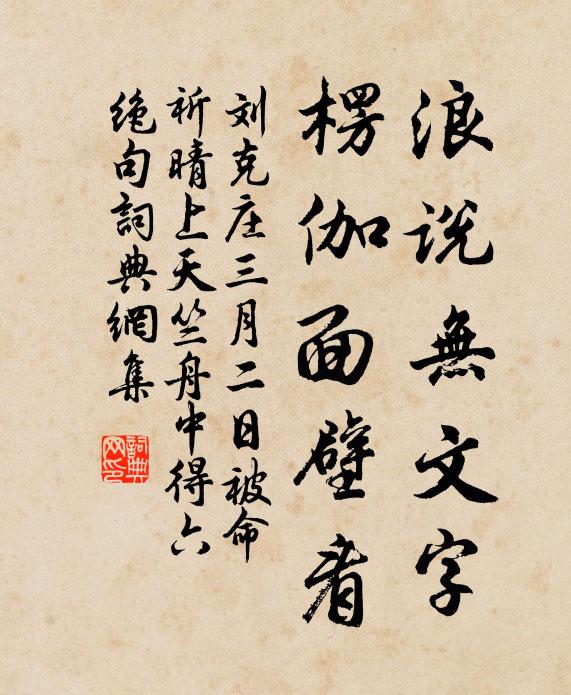 浪说無文字
楞伽面壁者
刘克庄三月二日被命
祈晴上天竺舟中得六
绝句詞典網集
詞典
网印